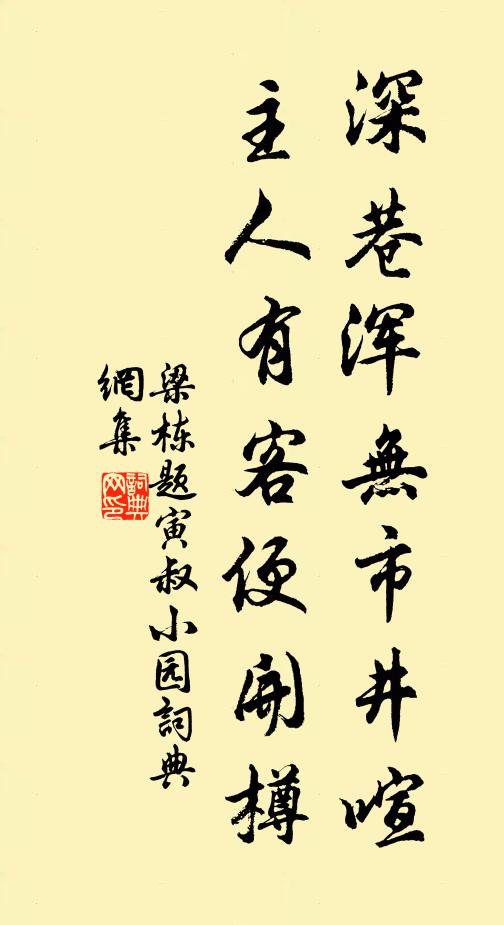 深巷浑無市井喧
主人有客便開樽
梁栋题寅叔小园詞典
網集
詞典
网印